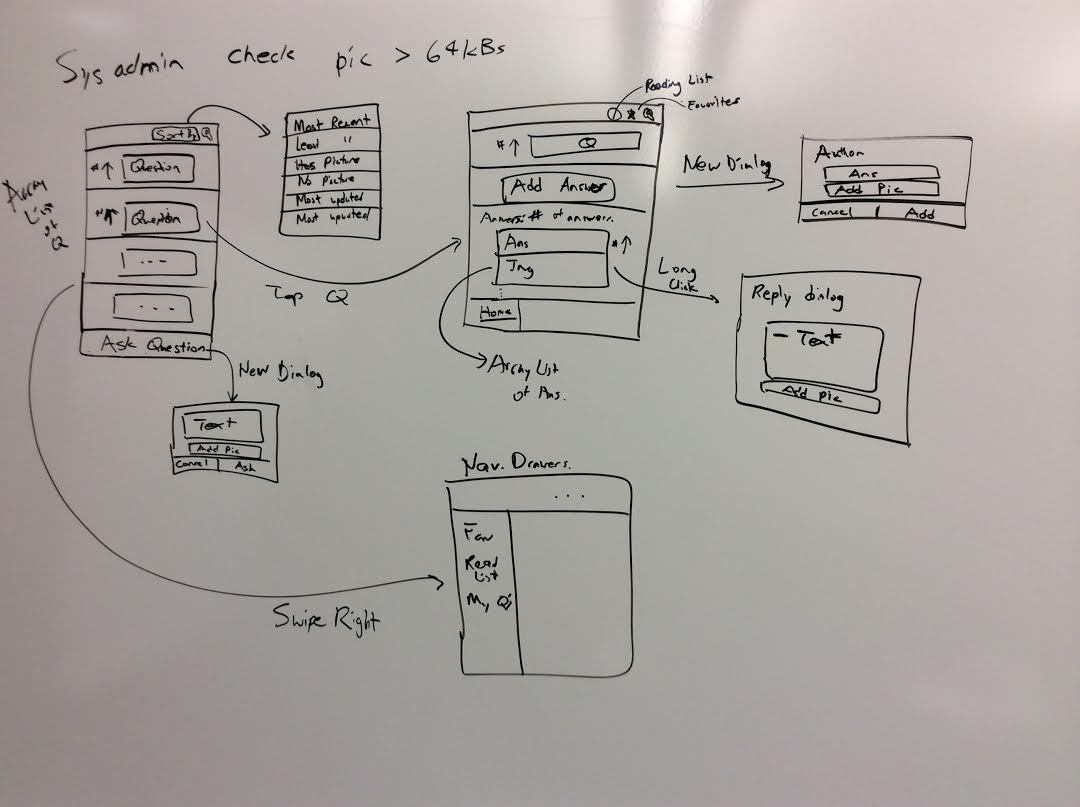 Sys admin check pic > 64kBs
Sort By Q
# ↑ Question
# ↑ Question
- - -
- - -
Ask Question
Array
List
of
Q
Most Recent
Least "
Has Picture
No Picture
Most updated
Most upvoted
Tap Q
New Dialog
Text
Add Pic
Cancel Ask
Reading List
Favorites
Q
# ↑ Q
Add Answer
Answers: # of answers.
Ans
# ↑
Img
Home
Array List
of Ans.
New Dialog
Author
Ans
Add Pic
Cancel Add
Long
Click
Reply dialog
- Text
Add pic
Swipe Right
Nav. Drawers.
. . .
Fav
Read
List
My Q's